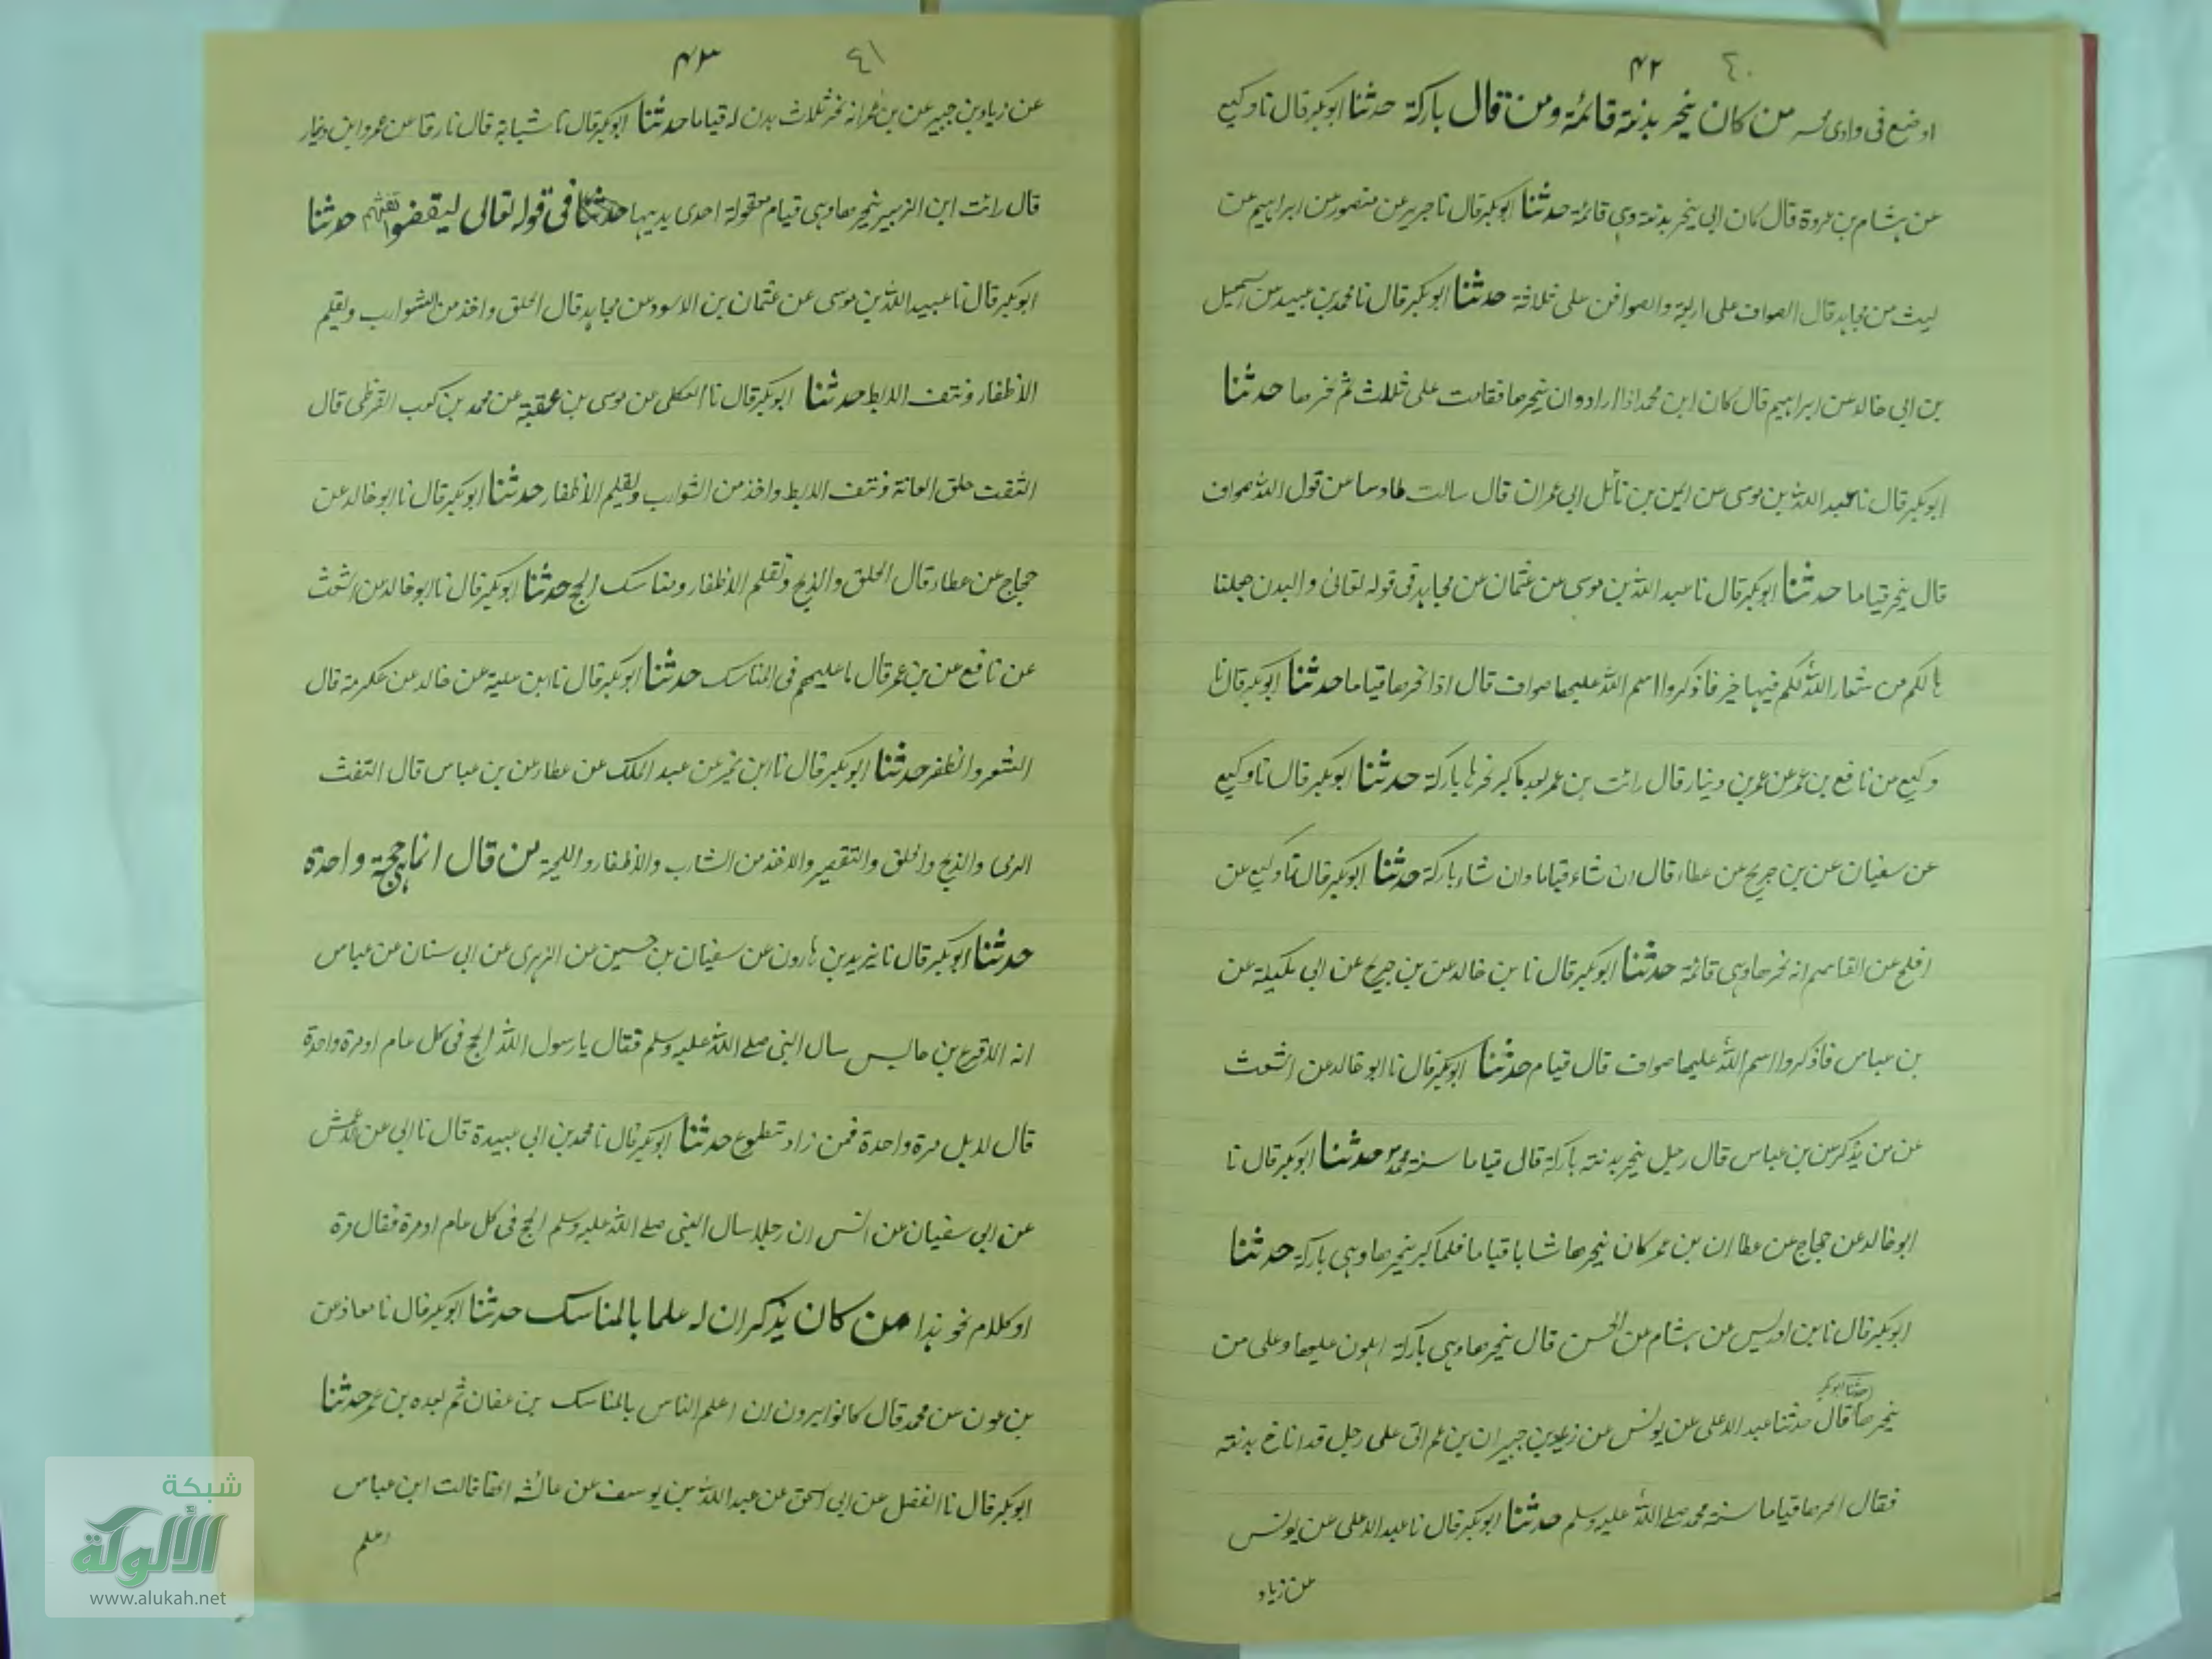 ٤٠ ۴۲
اوضع فى وادى محسر من كان ينحر بدنته قائمة ومن قال باركة حدثنا ابوبكر قال نا وكيع
عن هشام بن عروة قال كان ابى ينحر بدنته وهى قائمة حدثنا ابوبكر قال نا جرير عن منصور عن ابراهيم عن
ليث عن مجاهد قال الصواف على اربعة والصوافن على ثلاثة حدثنا ابوبكر قال نا محمد بن عبيد عن اسمعيل
بن ابى خالد عن ابراهيم قال كان ابن محمد اذا اراد وان ينحرها فقامت على ثلاث ثم نحرها حدثنا
ابوبكر قال نا عبيد الله بن موسى عن ايمن بن نائل ابى عمران قال سالت طاوسا عن قول الله صواف
قال ينحر قياما حدثنا ابوبكر قال نا عبيد الله بن موسى عن عثمان عن مجاهد فى قوله تعالى والبدن جعلنا
ها لكم من شعائر الله لكم فيها خير فاذكروا اسم الله عليها صواف قال اذا نحرها قياما حدثنا ابوبكر قال نا
وكيع عن نافع بن عمر عن عمر بن دينار قال رائت بن عمر بعد ما كبر نحرها باركة حدثنا ابوبكر قال نا وكيع
عن سفيان عن بن جريج عن عطاء قال ان شاء قياما وان شاء باركة حدثنا ابوبكر قال نا وكيع عن
افلح عن القاسم انه نحرها وهى قائمة حدثنا ابوبكر قال نا بن خالد عن بن جريج عن ابى مليكة عن
بن عباس فاذكروا اسم الله عليها صواف قال قيام حدثنا ابوبكر قال نا ابو خالد عن اشعث
عن من يذكر عن بن عباس قال رجل ينحر بدنته باركة قال قياما سنة محمد حدثنا ابوبكر قال نا
ابو خالد عن حجاج عن عطا ان بن عمر كان ينحرها شابا قياما فلما كبر ينحرها وهى باركة حدثنا
ابوبكر قال نا بن ادريس عن هشام عن الحسن قال ينحرها وهى باركة اهون عليها وعلى من
حدثنا ابوبكر
ينحرها قال حدثنا عبد الاعلى عن يونس عن زياد بن جبير ان بن عمر اتى على رجل قد اناخ بدنته
فقال انحرها قياما سنة محمد صلے الله عليه وسلم حدثنا ابوبكر قال نا عبد الاعلى عن يونس
عن زياد
٤١ ۴۳
عن زياد بن جبير عن بن عمر انه نحر ثلاث بدن له قياما حدثنا ابوبكر قال نا شبابة قال نا رقا عن عمرو ابن دينار
قال رائت ابن الزبير ينحرها وهى قيام معقولة احدى يديها فى قوله تعالى ليقضوا تفثهم حدثنا
ابوبكر قال نا عبيد الله بن موسى عن عثمان بن الاسود عن مجاهد قال الحلق واخذ من الشوارب وتقليم
الاظفار ونتف الابط حدثنا ابوبكر قال نا العكلى عن موسى بن عقبة عن محمد بن كعب القرظى قال
التفث حلق العانة ونتف الابط واخذ من الشوارب وتقليم الاظفار حدثنا ابوبكر قال نا ابو خالد عن
حجاج عن عطاء قال الحلق والذبح وتقلم الاظفار ومناسك الحج حدثنا ابوبكر قال نا ابو خالد عن اشعث
عن نافع عن بن عمر قال ما عليهم فى المناسك حدثنا ابوبكر قال نا ابن علية عن خالد عن عكرمة قال
الشعر والظفر حدثنا ابوبكر قال نا ابن نمير عن عبد الملك عن عطاء عن بن عباس قال التفث
الرمى والذبح والحلق والتقصير والاخذ من الشارب والاظفار واللحية من قال انما هى حجة واحدة
حدثنا ابوبكر قال نا يزيد بن هارون عن سفيان بن حسين عن الزهرى عن ابى سنان عن عباس
انه الاقرع بن حابس سال النبى صلے الله عليه وسلم فقال يا رسول الله الحج فى كل عام او مرة واحدة
قال لا بل مرة واحدة فمن زاد تطوع حدثنا ابوبكر قال نا محمد بن ابى عبيدة قال نا ابى عن الاعمش
عن ابى سفيان عن انس ان رجلا سال النبى صلے الله عليه وسلم الحج فى كل عام او مرة فقال مرة
او كلام نحو هذا من كان يذكر ان له علما بالمناسك حدثنا ابوبكر قال نا معاذ عن
بن عون عن محمد قال كانوا يرون ان اعلم الناس بالمناسك بن عفان ثم بعده بن عمر حدثنا
ابوبكر قال نا الفضل عن ابى اسحق عن عبد الله بن يوسف عن عائشه انها قالت ابن عباس
اعلم
شبكة
الألوكة
www.alukah.net